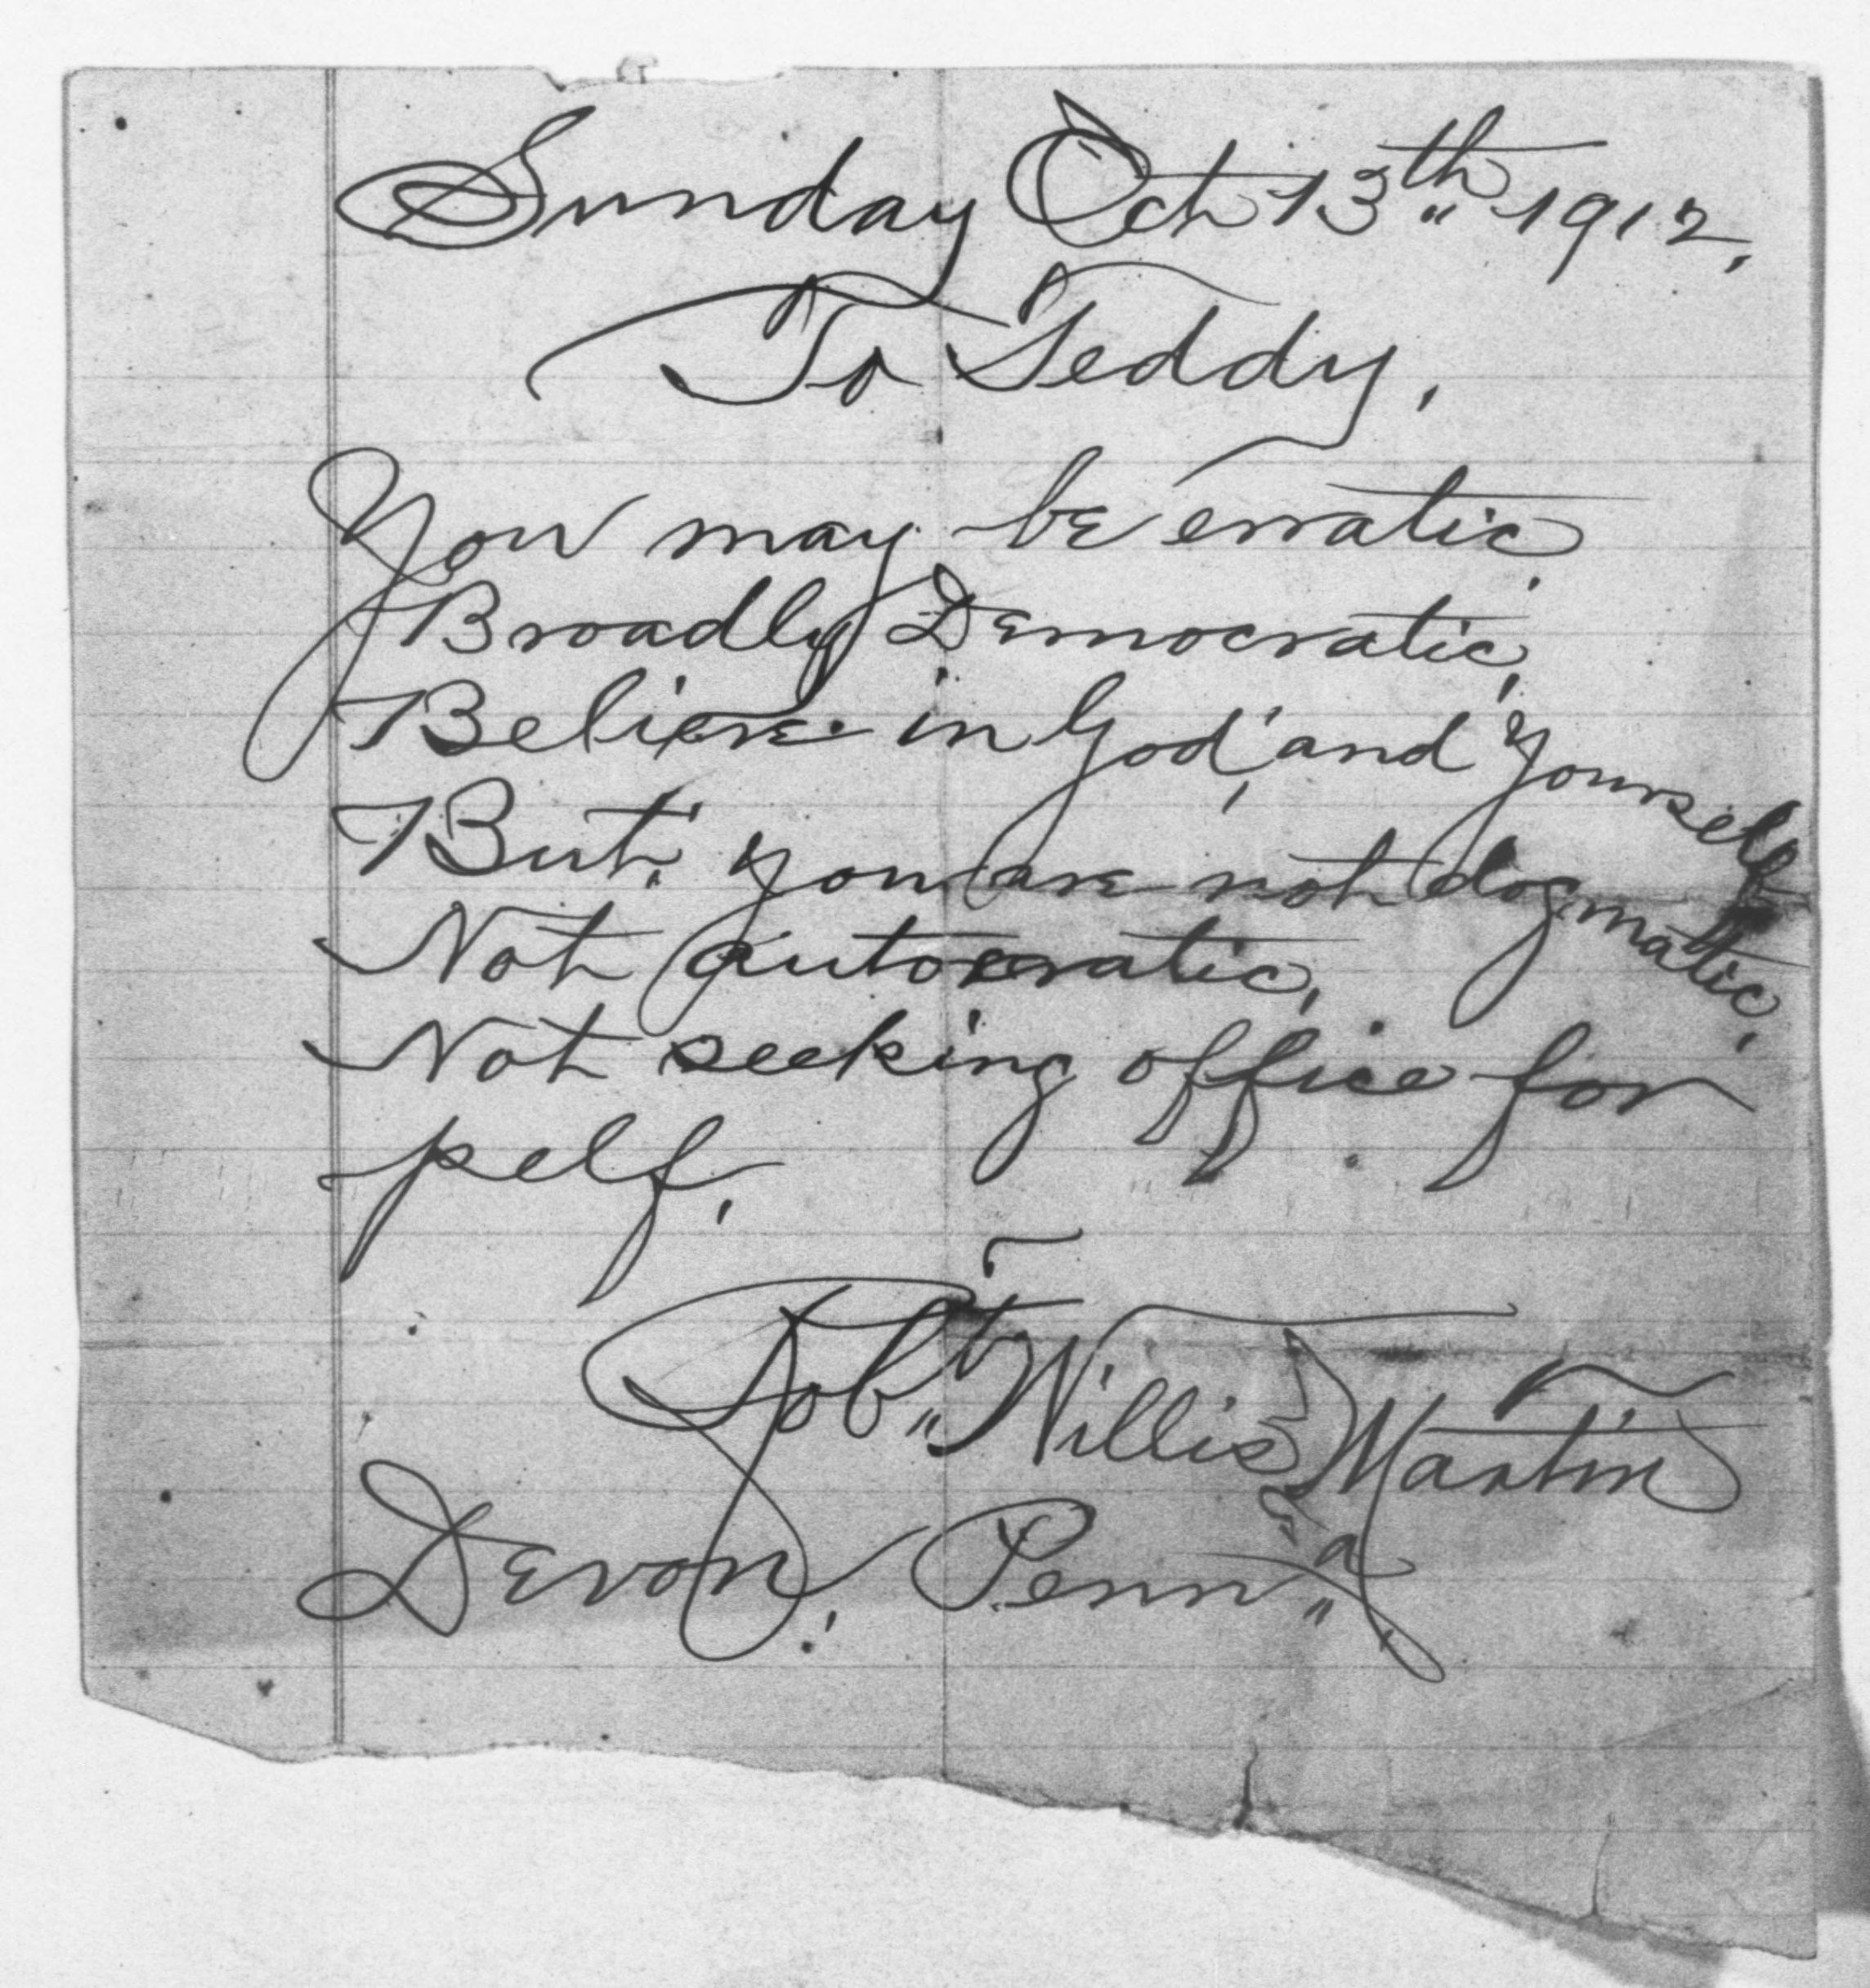 Sunday Oct 13th 1912.
To Teddy,
You may be erratic,
Broadly Democratic,
Believe in God, and yourself
But, you are not dogmatic,
Not autocratic,
Not seeking office for
pelf,
Robt Willis Martin
Devon, Penna.